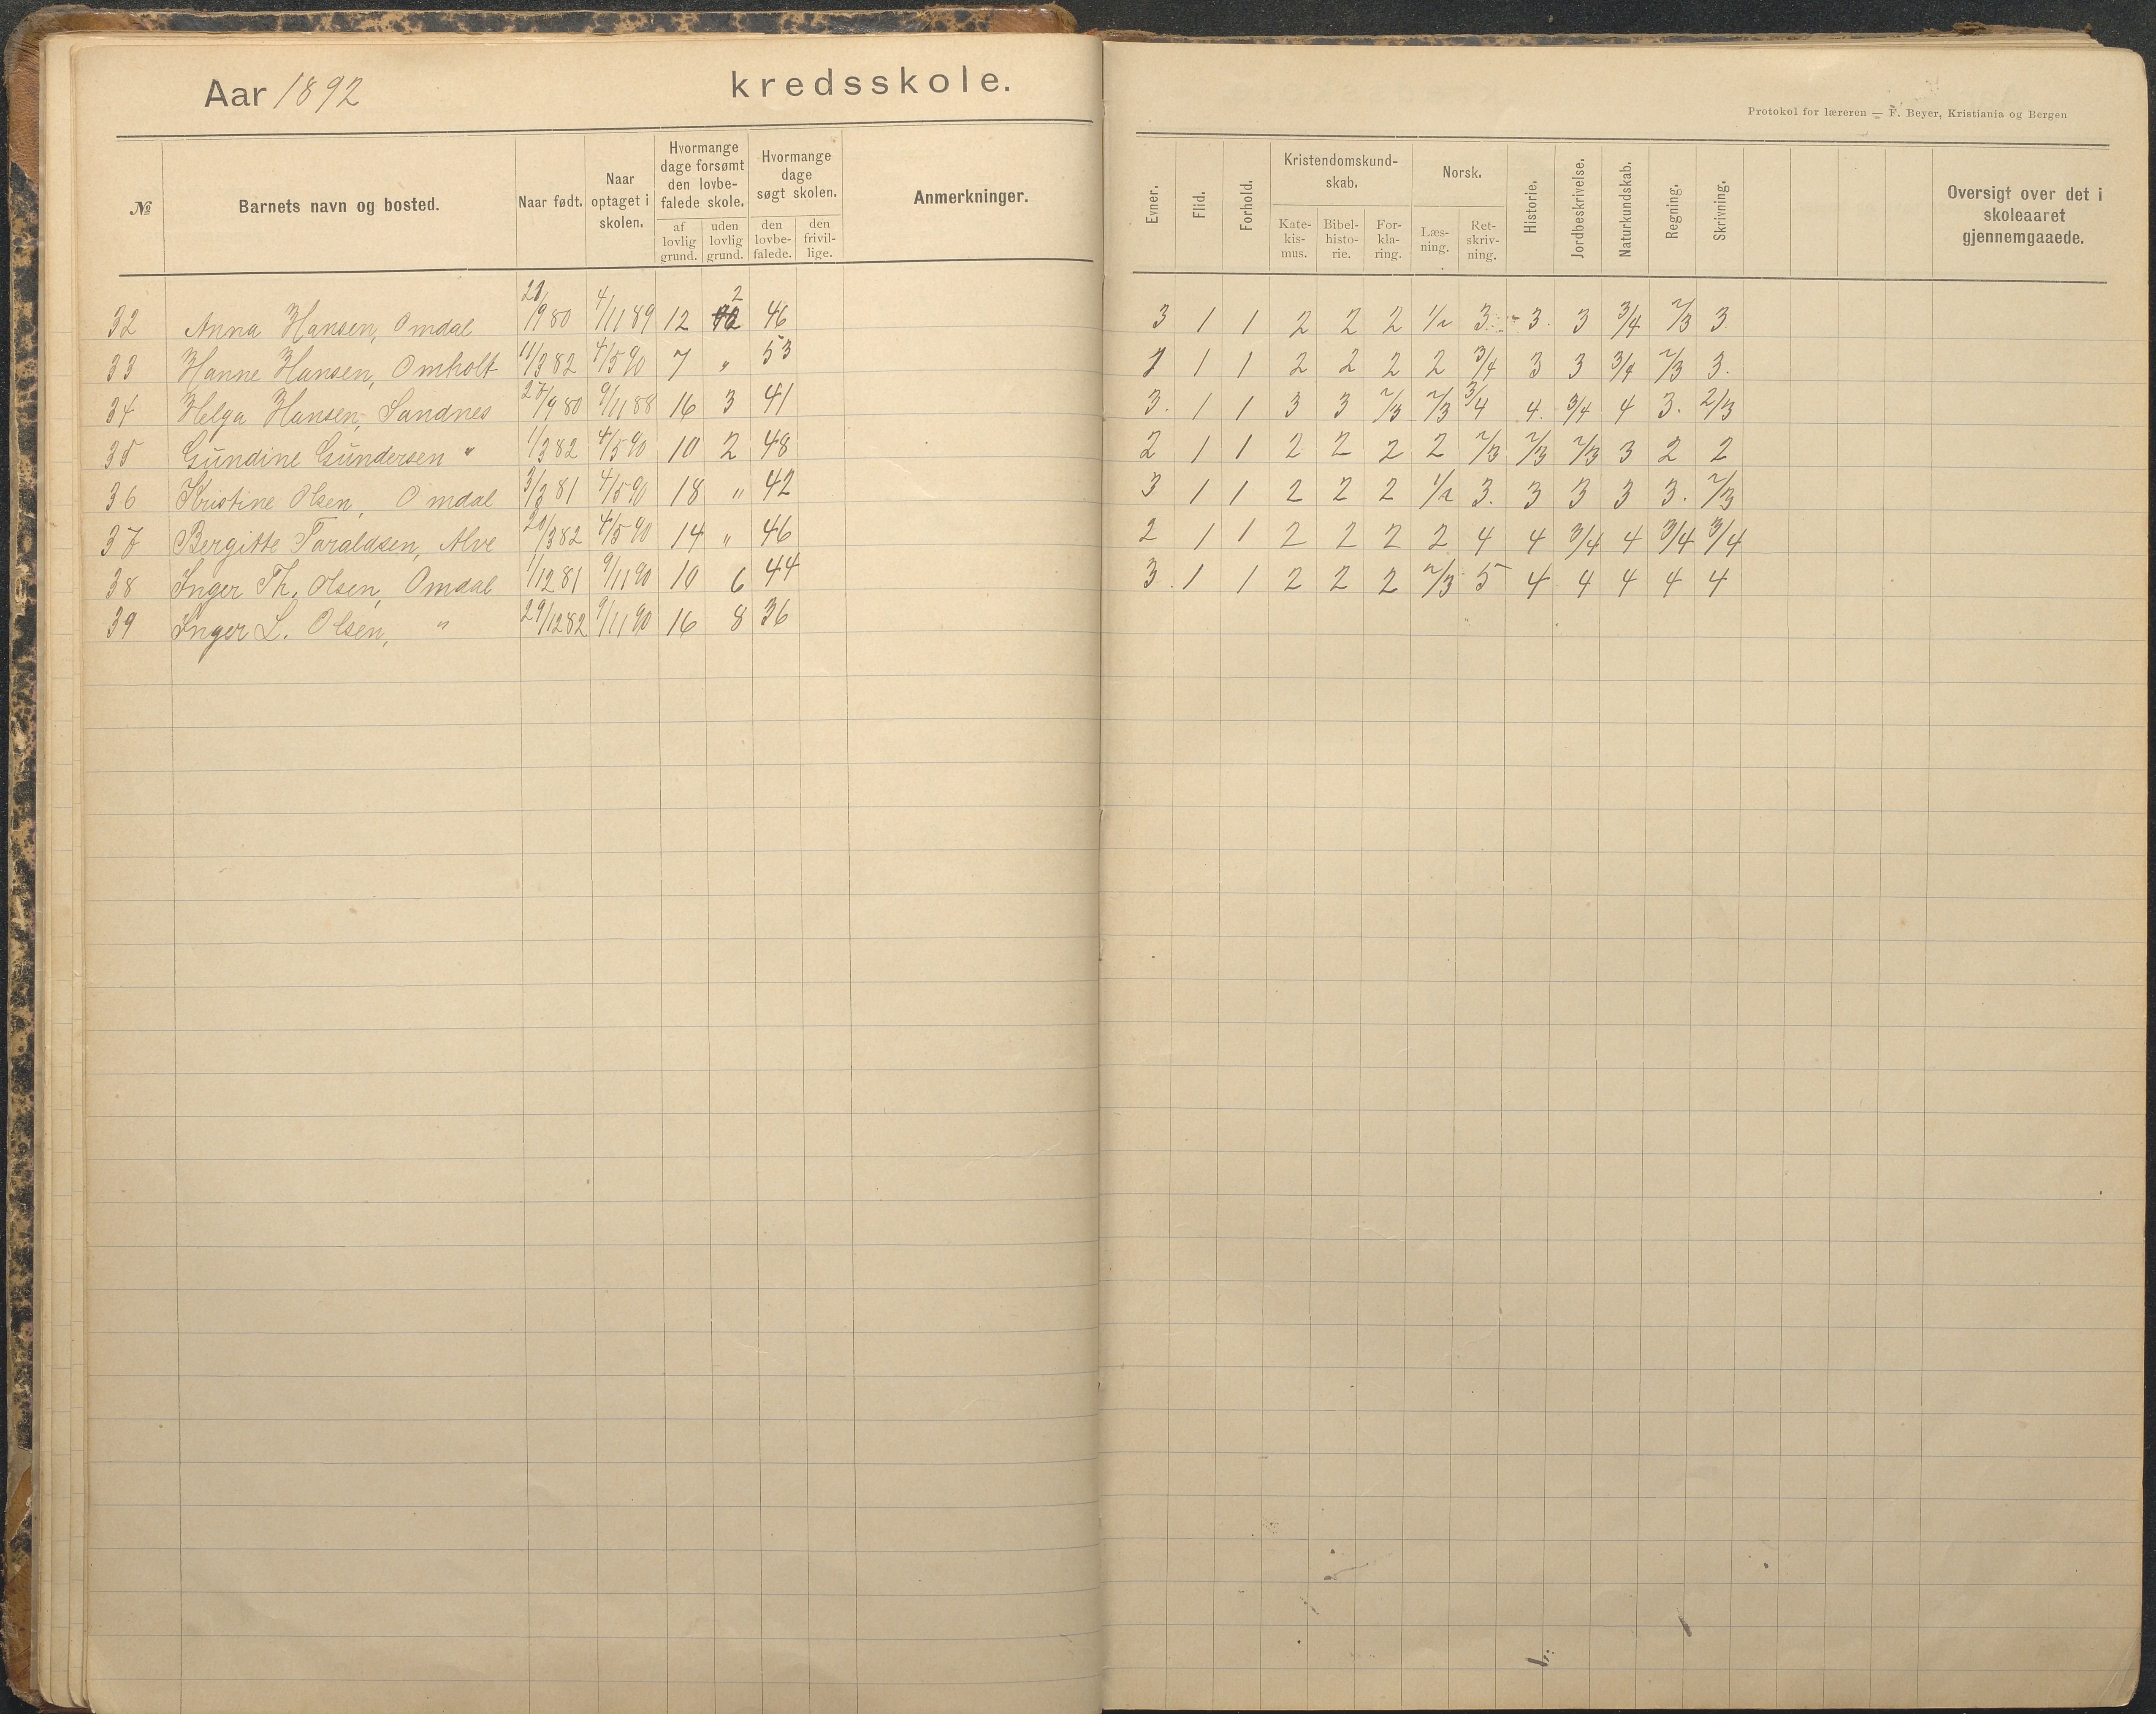 Aar 1892 kredsskole.
Protokol for læreren — F. Beyer, Kristiania og Bergen
№ Barnets navn og bosted. Naar født. Naar optaget i skolen. Hvormange dage forsømt den lovbefalede skole. af lovlig grund. uden lovlig grund. Hvormange dage søgt skolen. den lovbefalede. den frivillige. Anmerkninger. Evner. Flid. Forhold. Kristendomskundskab. Katekismus. Bibelhistorie. Forklaring. Norsk. Læsning. Retskrivning. Historie. Jordbeskrivelse. Naturkundskab. Regning. Skrivning. Oversigt over det i skoleaaret gjennemgaaede.
32 Anna Hansen, Omdal 21/9 80 4/11 89 12 2 46 3 1 1 2 2 2 1/2 3 3. 3 3/4 2/3 3.
33 Hanne Hansen, Omholt 11/3 82 4/5 90 7 " 53 1 1 2 2 2 2 3/4 3 3 3/4 2/3 3.
34 Helga Hansen, Sandnes 27/9 80 9/11 88 16 3 41 3. 1 1 3 3 2/3 2/3 3/4 4. 3/4 4 3. 2/3
35 Gundine Gundersen " 1/3 82 4/5 90 10 2 48 2 1 1 2 2 2 2 2/3 2/3 2/3 3 2 2
36 Kristine Olsen, Omdal 3/3 81 4/5 90 18 " 42 3 1 1 2 2 2 1/2 3. 3 3 3 3. 2/3
37 Bergitte Taraldsen, Alve 20/3 82 4/5 90 14 " 46 2 1 1 2 2 2 2 4 4 3/4 4 3/4 3/4
38 Inger Th. Olsen, Omdal 1/12 81 9/11 90 10 6 44 3. 1 1 2 2 2 2/3 5 4 4 4 4 4
39 Inger L. Olsen, " 29/12 82 9/11 90 16 8 36